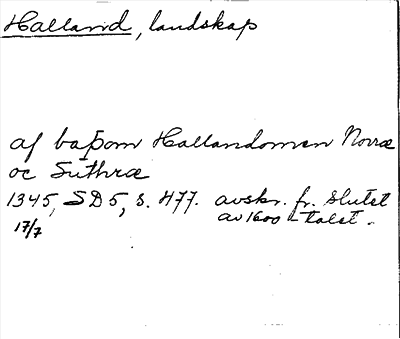 Halland, landskap
af baþom Hallandomen Norræ
oc Suthræ
1345, SD 5, s. 477. avskr. fr. slutet
17/7 av 1600-talet.